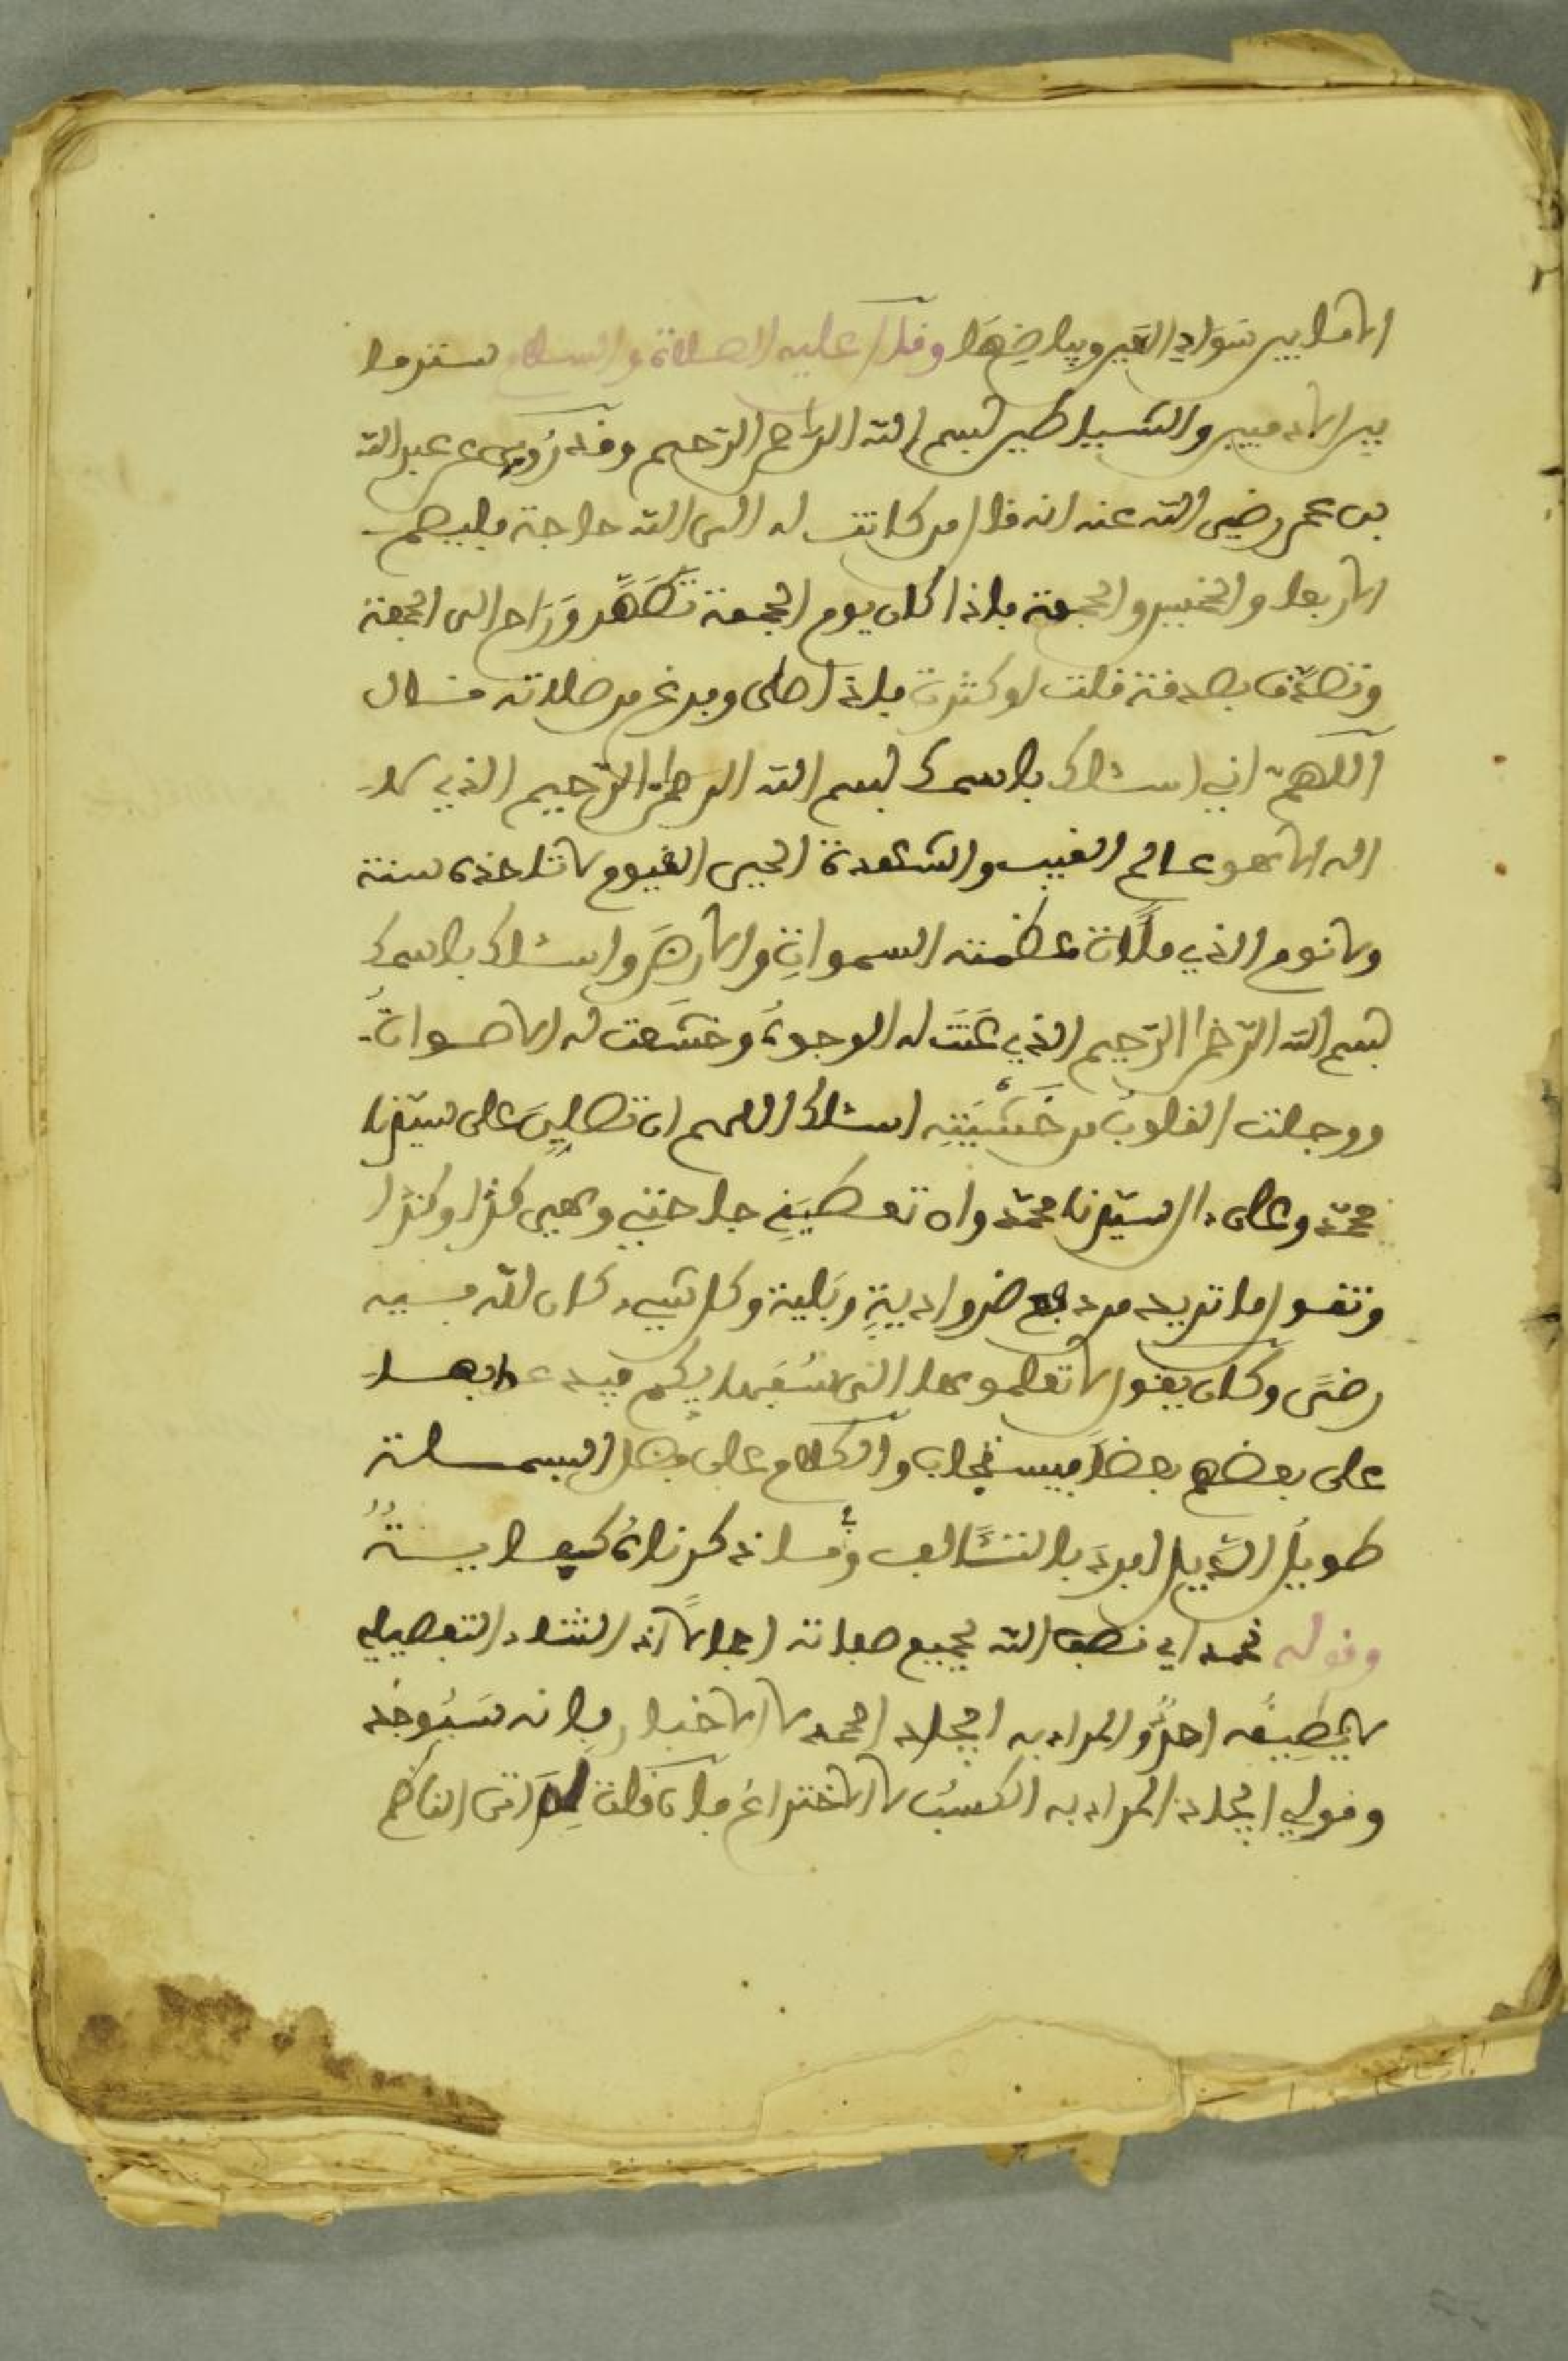 الا ما بين سَوادِ العين وبياضِهَا وقال عليه الصلاة والسلام ستر ما
بين الادميين والشياطين بسم الله الرحمن الرحيم وقد رُوِيَ عن عبد الله
بن عمر رضي الله عنه انه قال من كانت له الى الله حاجة فليصم
الاربعا والخميس والجمعة فاذا كان يوم الجمعة تَطَهَّر وَرَاح الى الجمعة
وتصدّق بصدقة قلت او كثرت فاذا صلى وفرغ من صلاته قال
اللهم اني اسئلك باسمك بسم الله الرحمن الرحيم الذي لا
اله الا هو عالم الغيب والشهدة الحي القيوم لا تاخذه سنة
ولا نوم الذي ملأت عظمته السمواتِ والارضَ واسئلك باسمك
بسم الله الرحمن الرحيم الذي عَنَتَ له الوجوهُ وخشَعت له الاصواتُ
ووجلت القلوبُ من خَشْيَتِهِ اسئلك اللهم ان تصلِيَ على سيّدنا
محمّد وعلى ءال سيّدنا محمّد وان تعطيَنِي حاجتي وهي كذا وكذا
وتقول ما تريد من دفع ضر وا ديةٍ وبَلية وكل شيء كان لله فيه
رضىً وكان يقول لا تعلموها لسُفَهايكم فيدعوا بها
على بعضهم بعضاً فيستجاب والكلام على فضل البسملة
طويل الذيل افرد بالتئاليف وفي ما ذكرناهُ كفايةٌ
وقوله نحمد اي نصف الله بجميع صفاته اجمالاً اذ الثناء التفصيلي
لا يطيقُه احدٌ والمراد به ايجاد الحمد لا الاخبار بانه سَيُوجَد
وقولي ايجاد المراد به الكسبُ لا الاختراع فان قلت لِمَ اتى الناظم